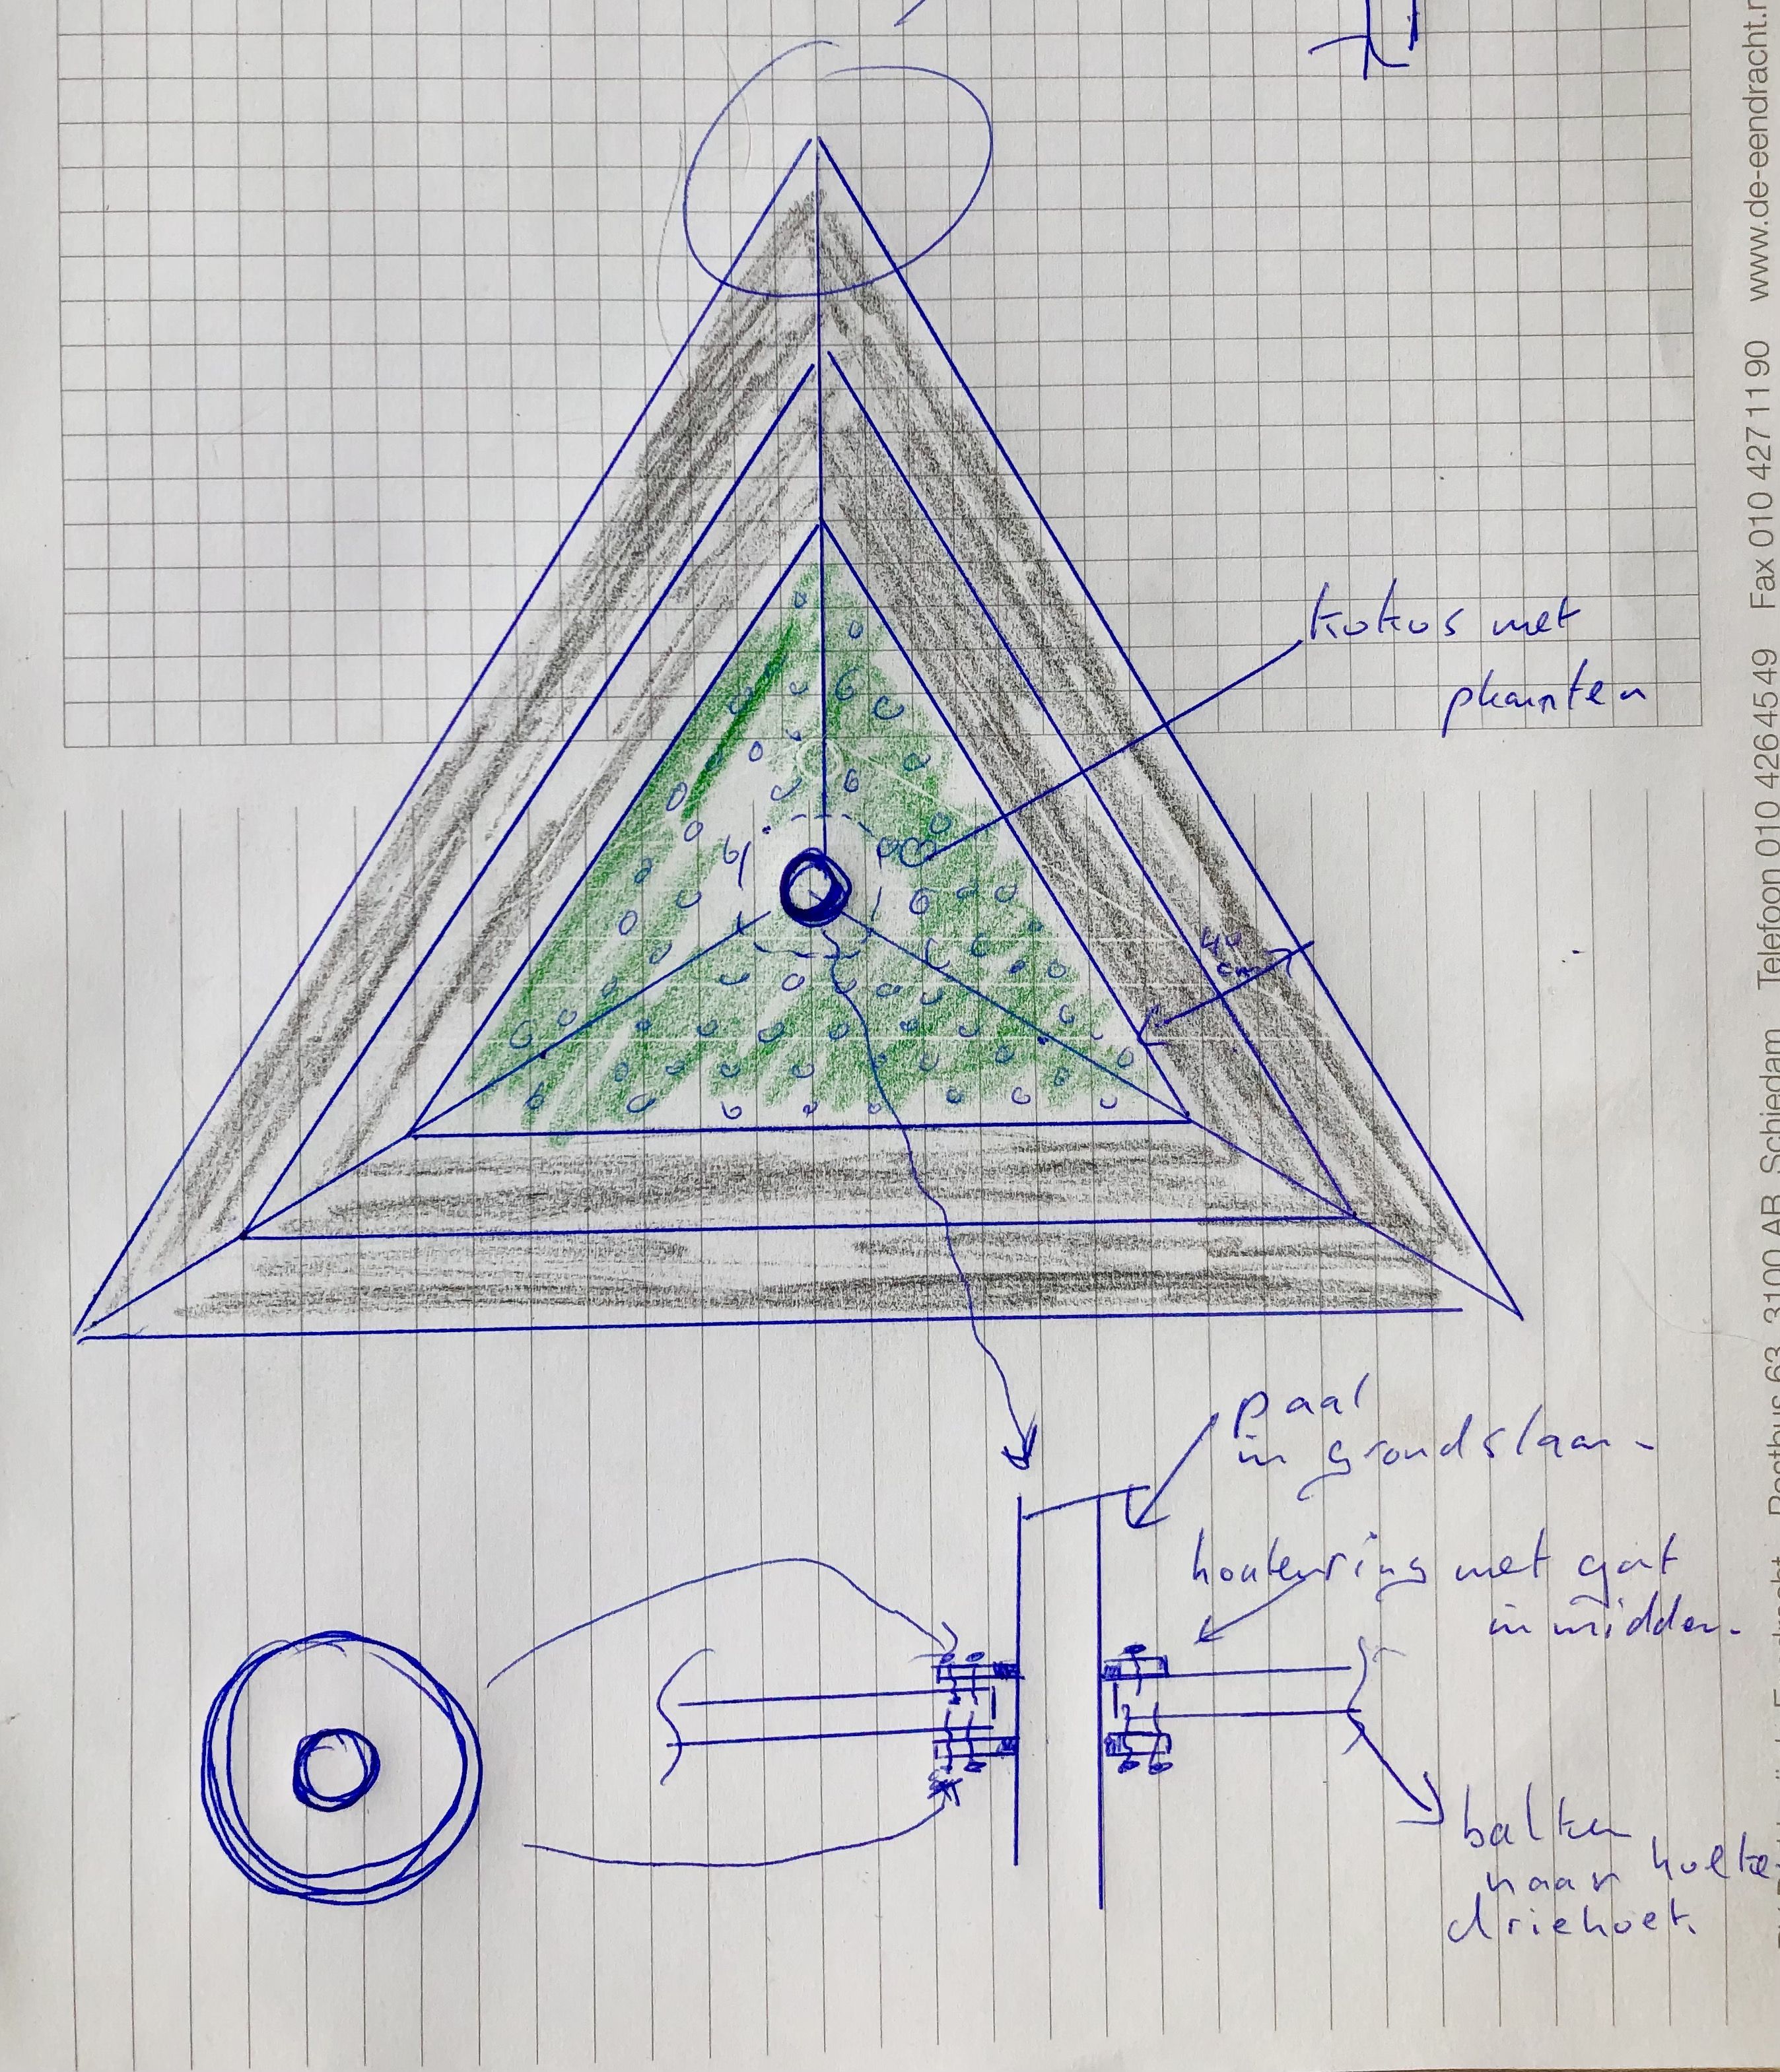 kokus met
planten
40
cm
paal
in grond slaan-
houten ring met gat
in midden-
balken
naar hoeke
driehoek.
Postbus 63, 3100 AB Schiedam Telefoon 010 426 45 49 Fax 010 427 11 90 www.de-eendracht.n